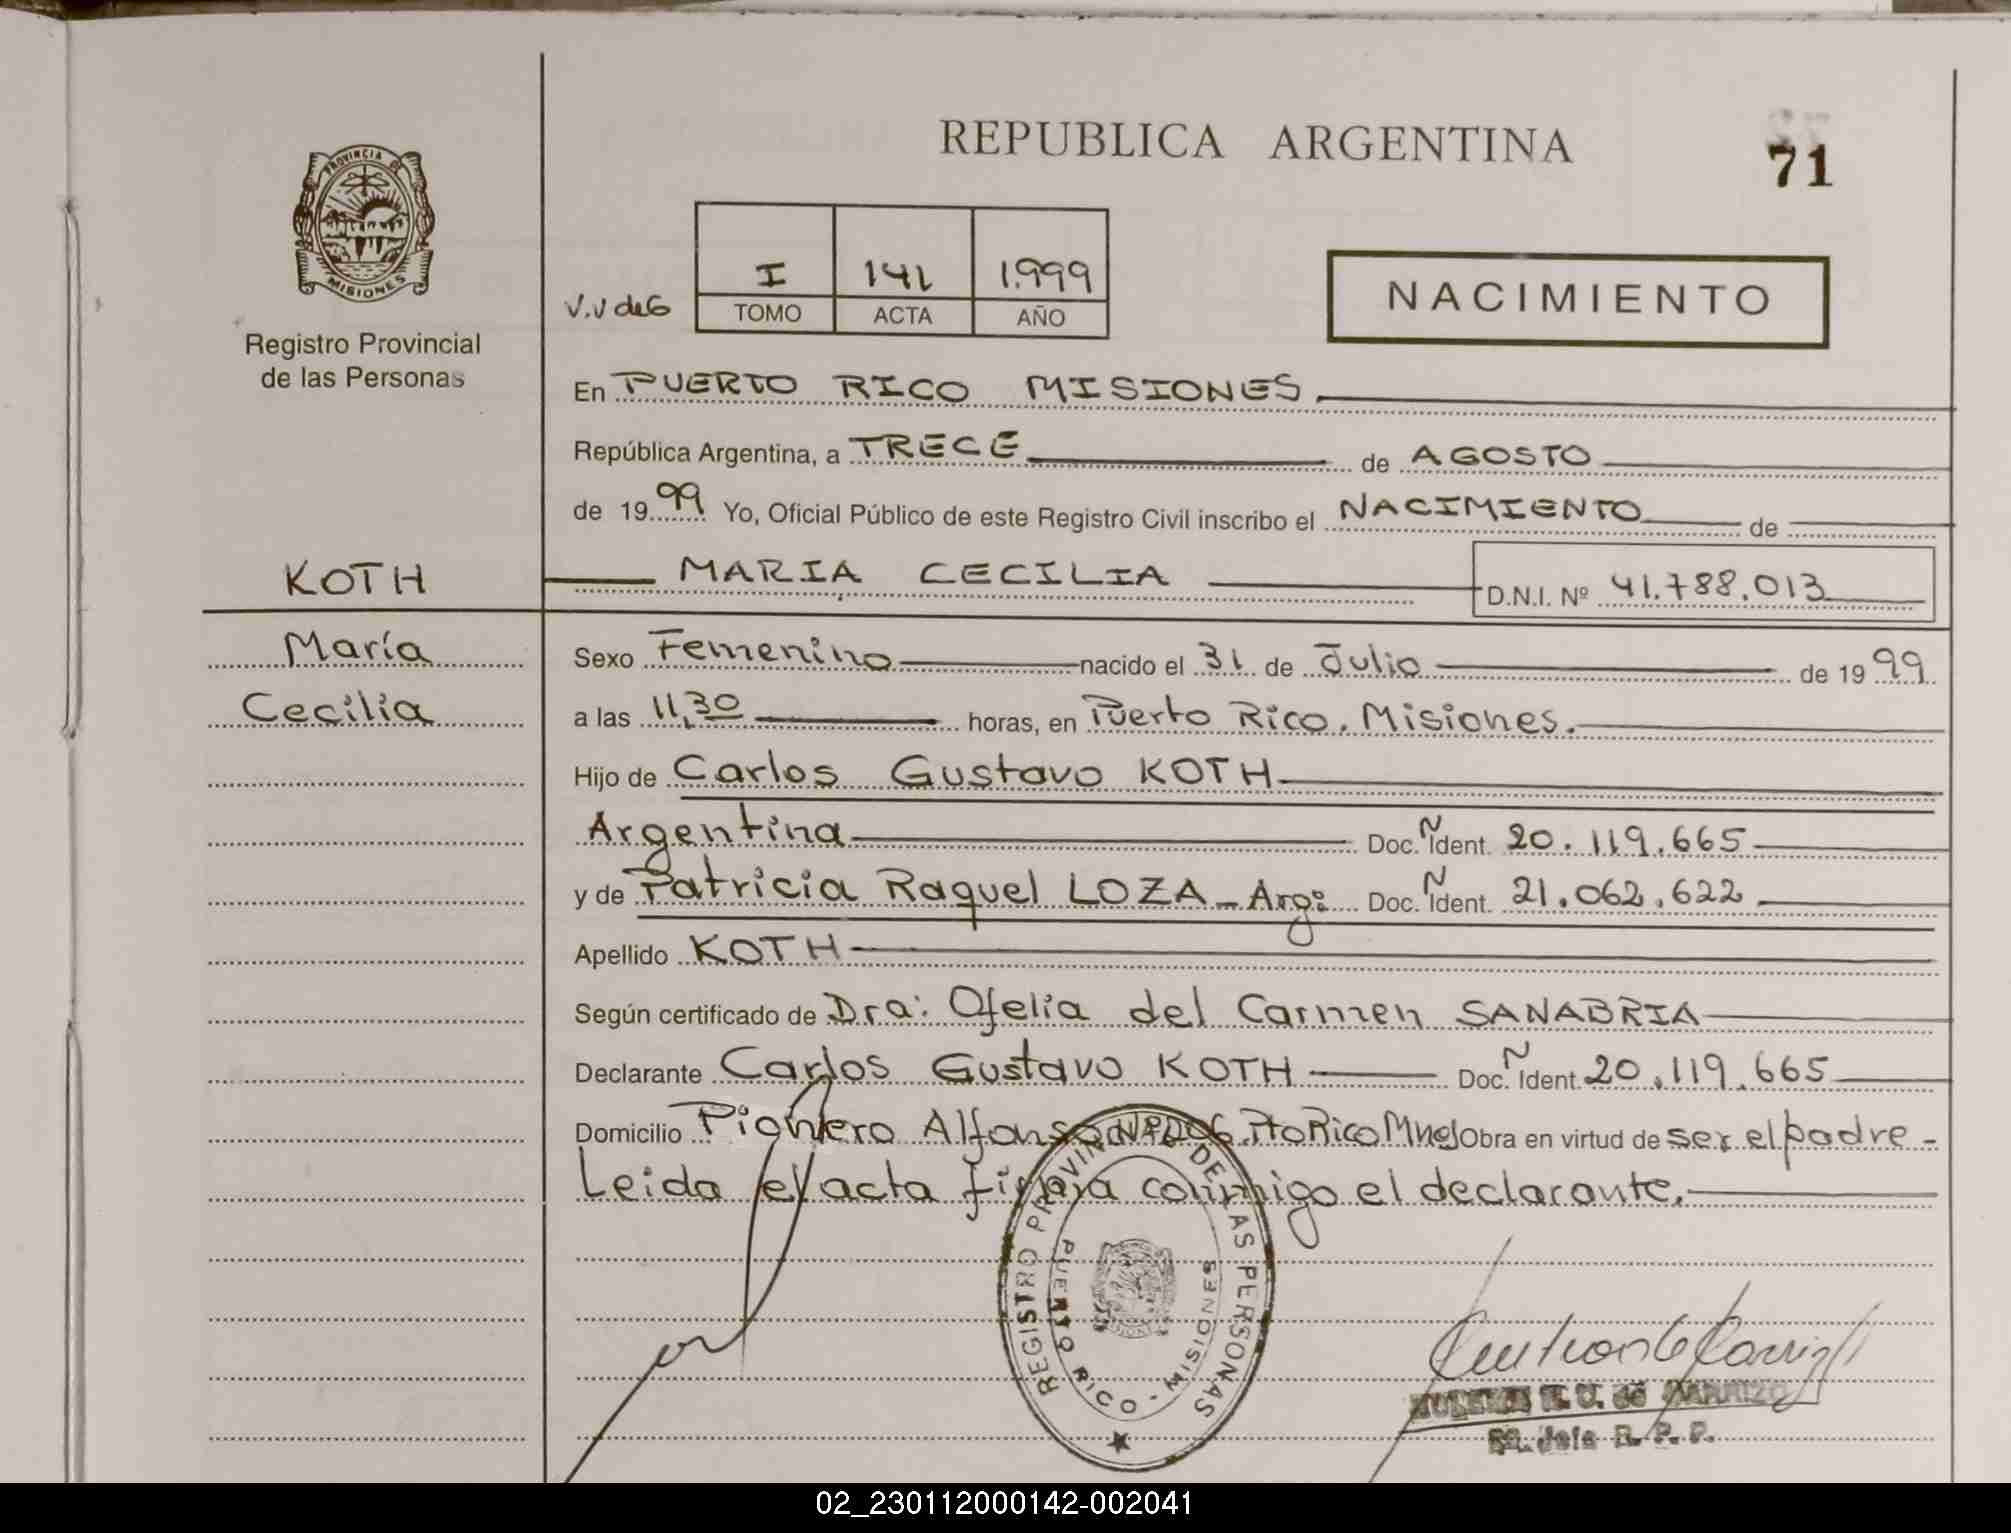 REPUBLICA ARGENTINA
71
PROVINCIA DE
MISIONES
Registro Provincial
de las Personas
V.V de G
I 141 1.999
TOMO ACTA AÑO
NACIMIENTO
En PUERTO RICO MISIONES
República Argentina, a TRECE de AGOSTO
de 1999 Yo, Oficial Público de este Registro Civil inscribo el NACIMIENTO de
KOTH
MARIA CECILIA D.N.I. Nº 41.788.013
María
Cecilia
Sexo Femenino nacido el 31 de Julio de 1999
a las 11,30 horas, en Puerto Rico. Misiones.
Hijo de Carlos Gustavo KOTH
Argentina Doc. Ñ Ident. 20.119.665
y de Patricia Raquel LOZA - Arg: Doc. Ñ Ident. 21.062.622
Apellido KOTH
Según certificado de Dra: Ofelia del Carmen SANABRIA
Declarante Carlos Gustavo KOTH Doc. Ñ Ident. 20.119.665
Domicilio Pionero Alfonso Pto Rico Mnes Obra en virtud de ser el padre -
Leida el acta firma conmigo el declarante.
REGISTRO PROVINCIAL DE LAS PERSONAS
PUERTO RICO - MISIONES
de CARRIZO
R. P. P.
02_230112000142-002041